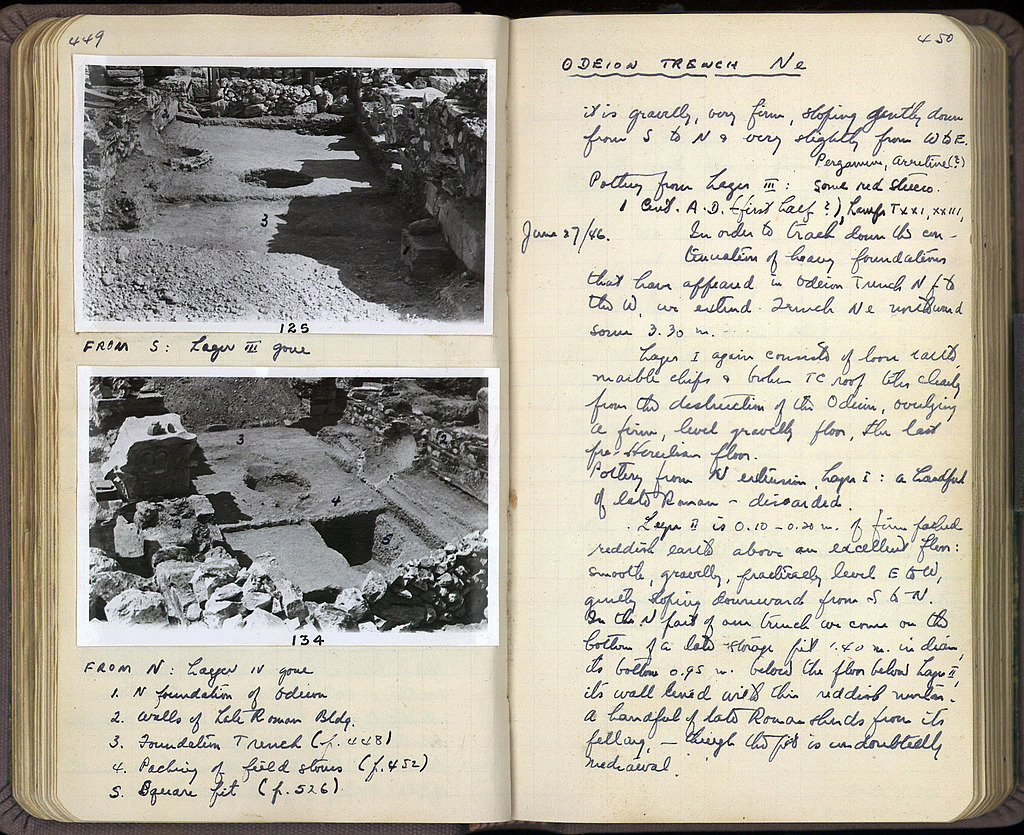 449
3
125
FROM S: Layer III gone
3
2
4
5
134
FROM N: Layer IV gone
1. N foundation of Odeion
2. Walls of Late Roman Bldg.
3. Foundation Trench (p. 448)
4. Packing of field stones (p. 452)
5. Square pit (p. 526)
450
ODEION TRENCH Ne
it is gravelly, very firm, sloping gently down
from S to N & very slightly from W to E.
Pergamene, Arretine(?)
Pottery from Layer III: some red stucco.
1 Cent. A.D. (first half?), Lamps T XXI, XXIII,
June 27/46. In order to track down the con-
tinuation of heavy foundations
that have appeared in Odeion Trench N to
the W, we extend Trench Ne northward
some 3.30 m.
Layer I again consists of loose earth,
marble chips & broken TC roof tiles clearly
from the destruction of the Odeion, overlying
a firm, level gravelly floor, the last
pre-Herulian floor.
Pottery from N extension, Layer I: a handful
of late Roman – discarded.
Layer II is 0.10–0.20 m. of firm packed
reddish earth above an excellent floor:
smooth, gravelly, practically level E to W,
gently sloping downward from S to N.
In the N part of our trench we come on the
bottom of a late storage pit 1.40 m. in diam,
its bottom 0.95 m. below the floor below Layer II,
its wall lined with thin reddish mortar.
A handful of late Roman sherds from its
filling, – though the pit is undoubtedly
mediaeval.